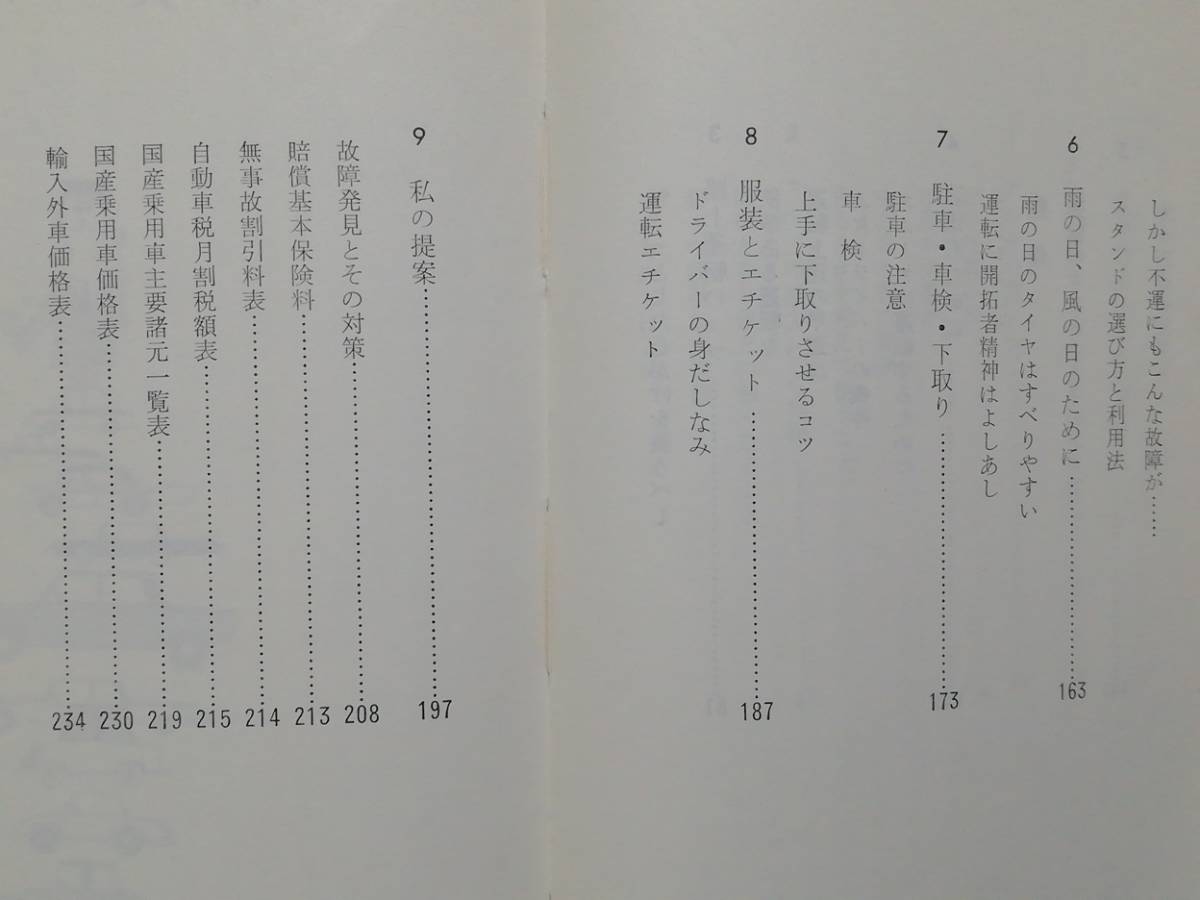 しかし不運にもこんな故障が……
スタンドの選び方と利用法
6 雨の日、風の日のために……………………163
雨の日のタイヤはすべりやすい
運転に開拓者精神はよしあし
7 駐車・車検・下取り……………………173
駐車の注意
車検
上手に下取りさせるコツ
8 服装とエチケット……………………187
ドライバーの身だしなみ
運転エチケット
9 私の提案……………………197
故障発見とその対策……………………208
賠償基本保険料……………………213
無事故割引料表……………………214
自動車税月割税額表……………………215
国産乗用車主要諸元一覧表……………………219
国産乗用車価格表……………………230
輸入外車価格表……………………234